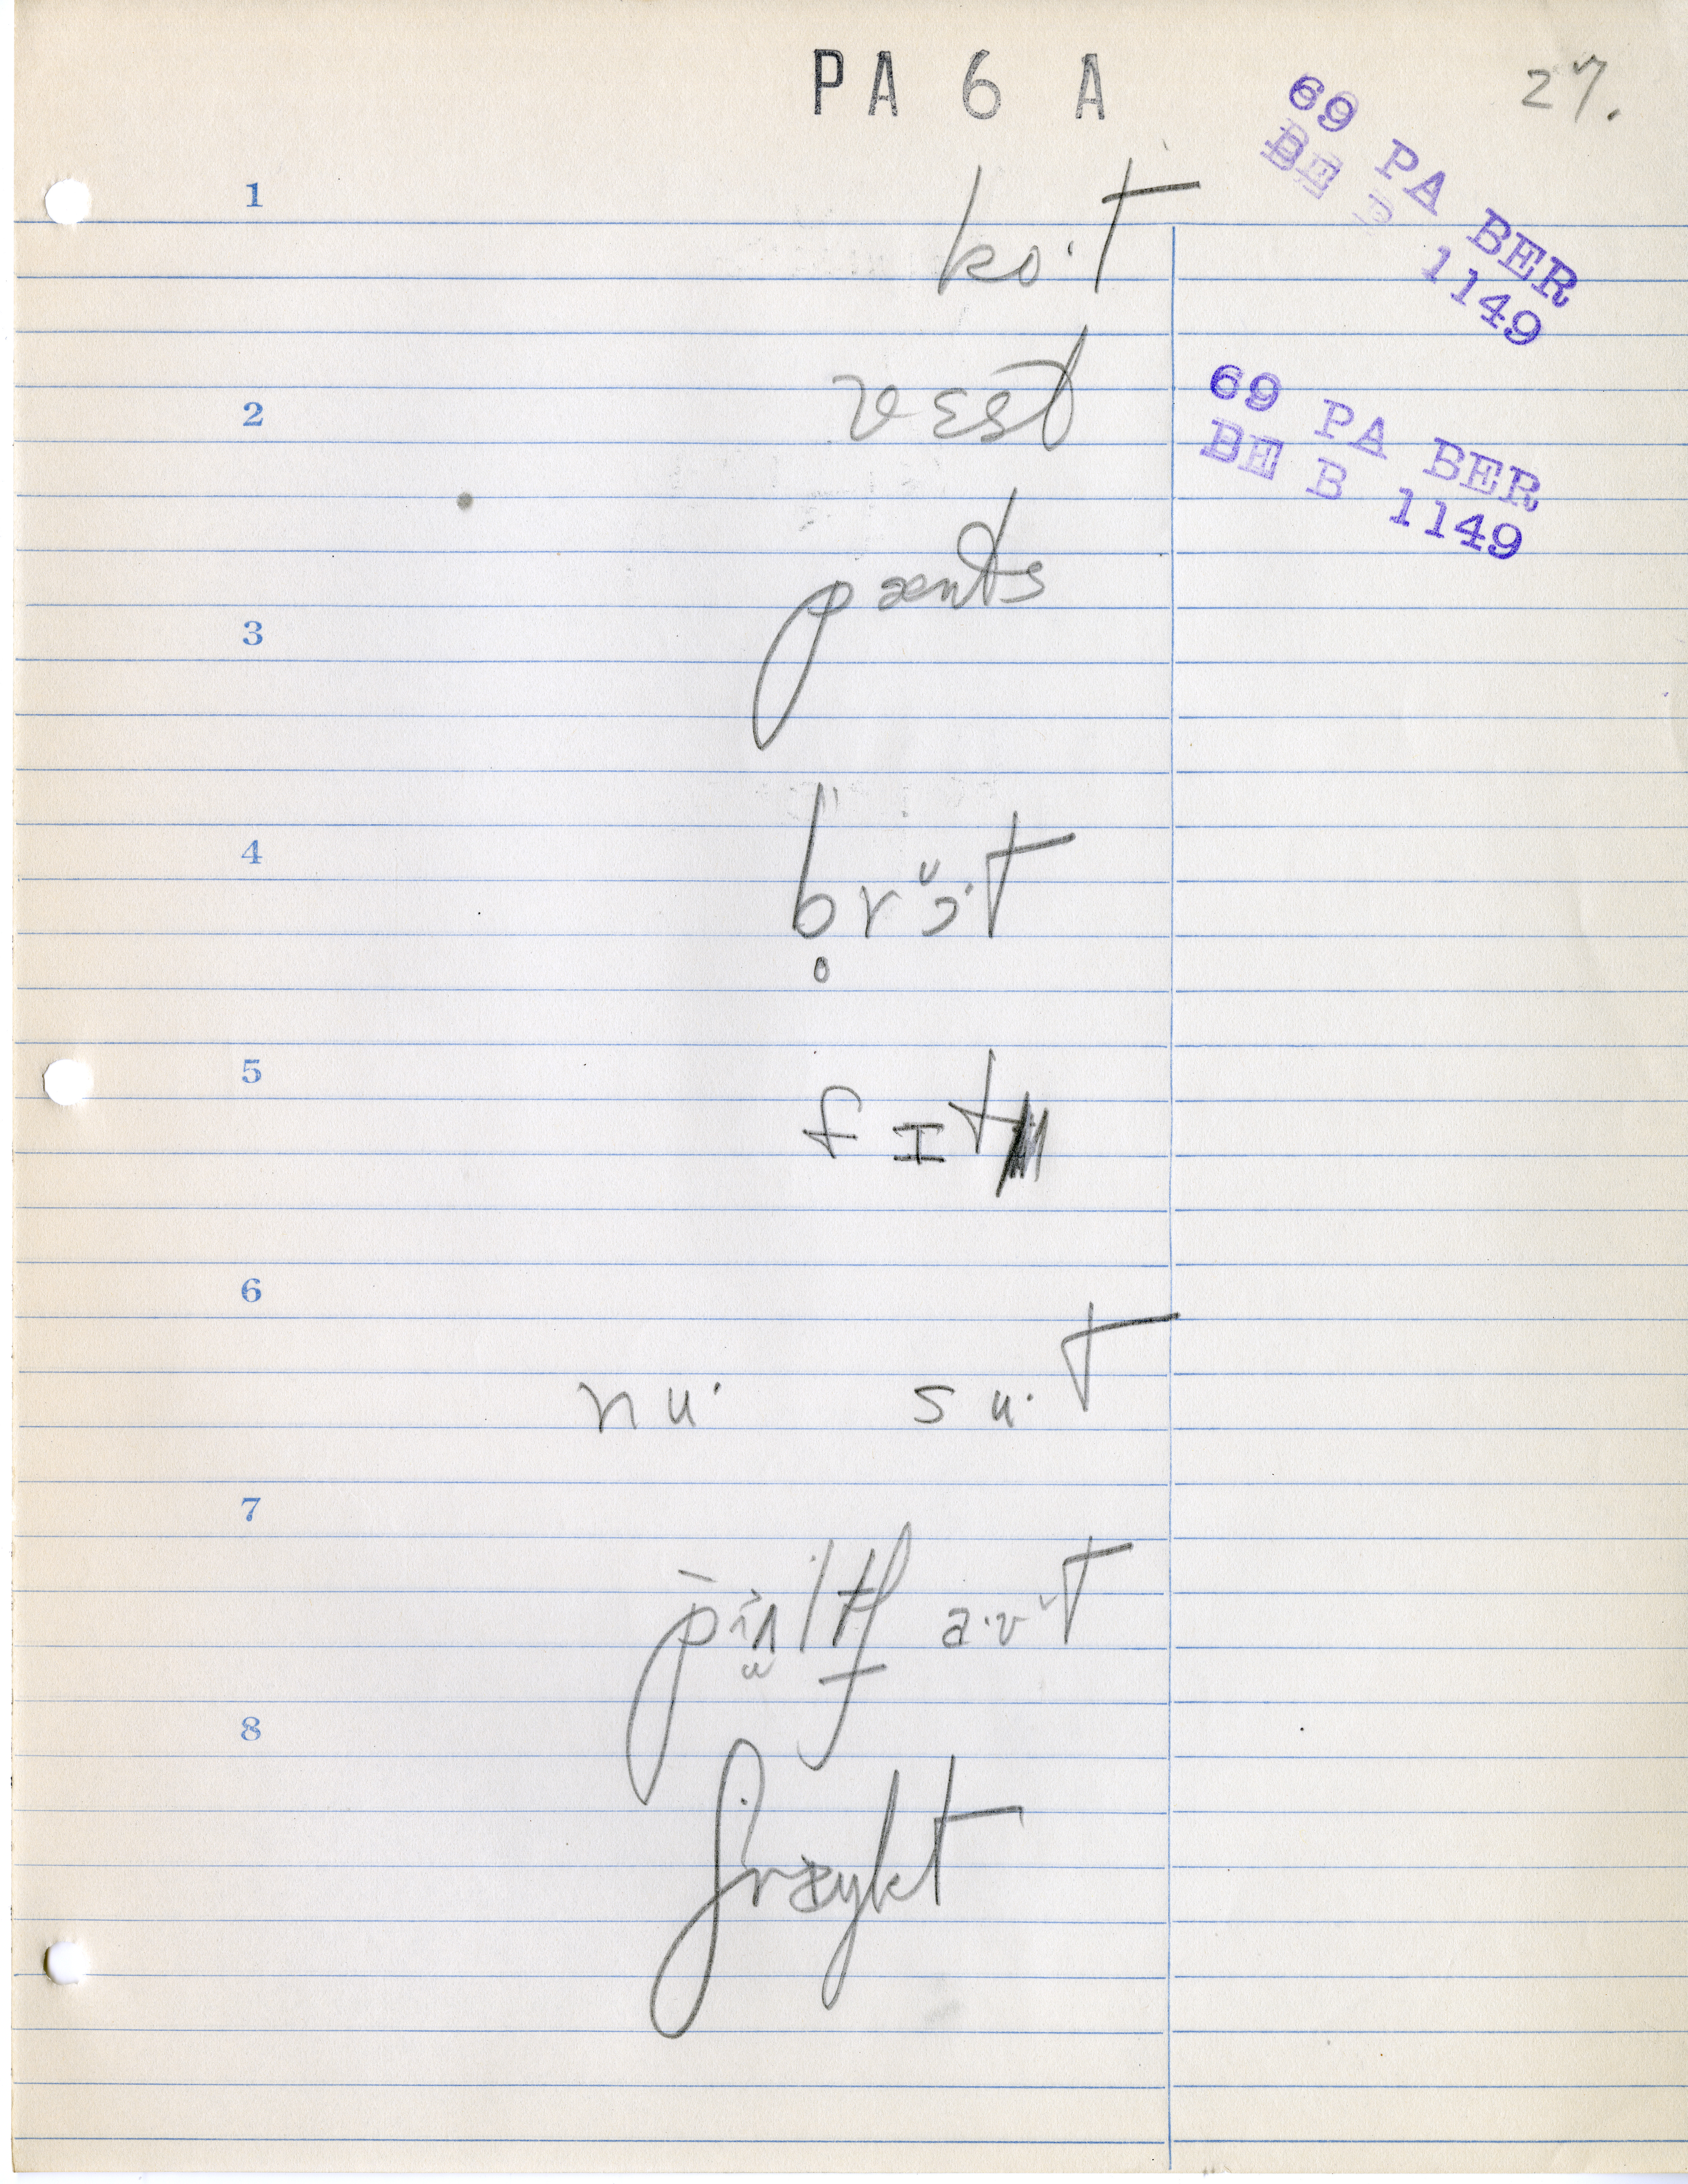 PA 6 A
27.
69 PA BER
BE B 1149
69 PA BER
BE B 1149
1
ko·t
2
vɛst
3
pænts
4
b̥rɔ̆·t
5
fɪt
6
nu· su·t
7
8